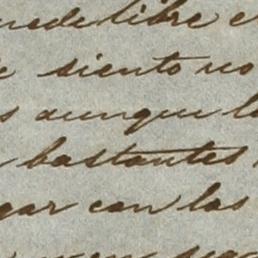 uede libre e
siento no
s aunque l
bastantes
gar con las